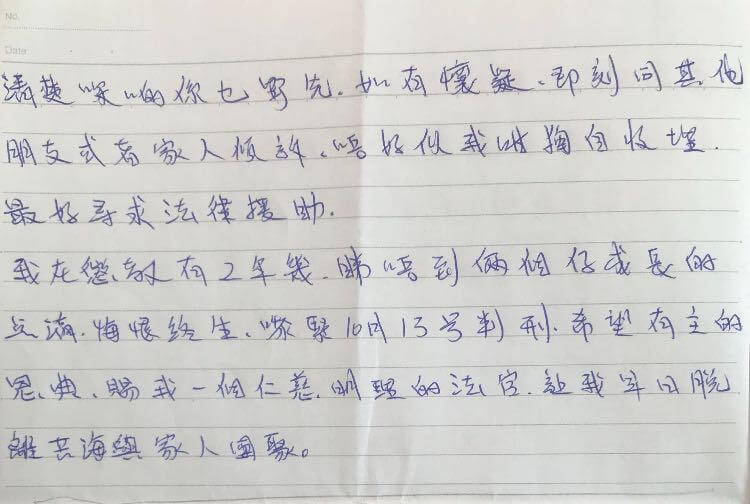 No.
Date
清楚咪啲你乜野先. 如有懷疑、即刻同其他
朋友或者家人傾訴、唔好似我咁獨自收埋.
最好尋求法律援助.
我在懲教有2年幾. 睇唔到倆個仔成長的
点滴. 悔恨終生、嚟緊10月13号判刑. 希望有主的
恩典、賜我一個仁慈. 明理的法官. 讓我早日脫
離苦海與家人團聚。